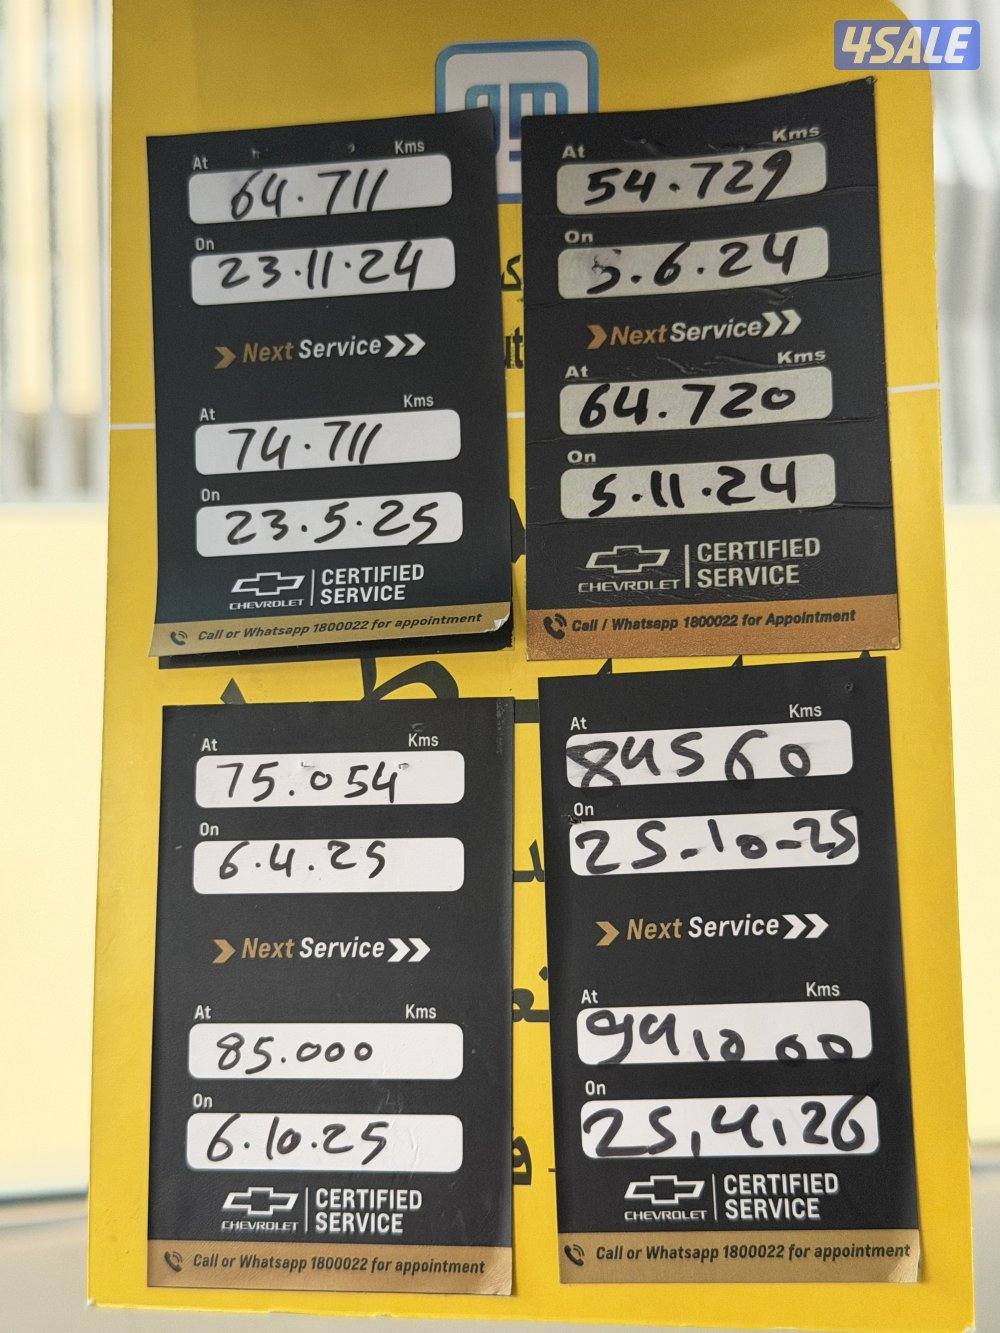 4SALE
gm
At Kms
64.711
On
23.11.24
Next Service
At Kms
74.711
On
23.5.25
CHEVROLET CERTIFIED SERVICE
Call or Whatsapp 1800022 for appointment
At Kms
54.729
On
5.6.24
Next Service
At Kms
64.720
On
5.11.24
CHEVROLET CERTIFIED SERVICE
Call / Whatsapp 1800022 for Appointment
At Kms
75.054
On
6.4.25
Next Service
At Kms
85.000
On
6.10.25
CHEVROLET CERTIFIED SERVICE
Call or Whatsapp 1800022 for appointment
At Kms
84560
On
25-10-25
Next Service
At Kms
On
25,4,26
CHEVROLET CERTIFIED SERVICE
Call or Whatsapp 1800022 for appointment